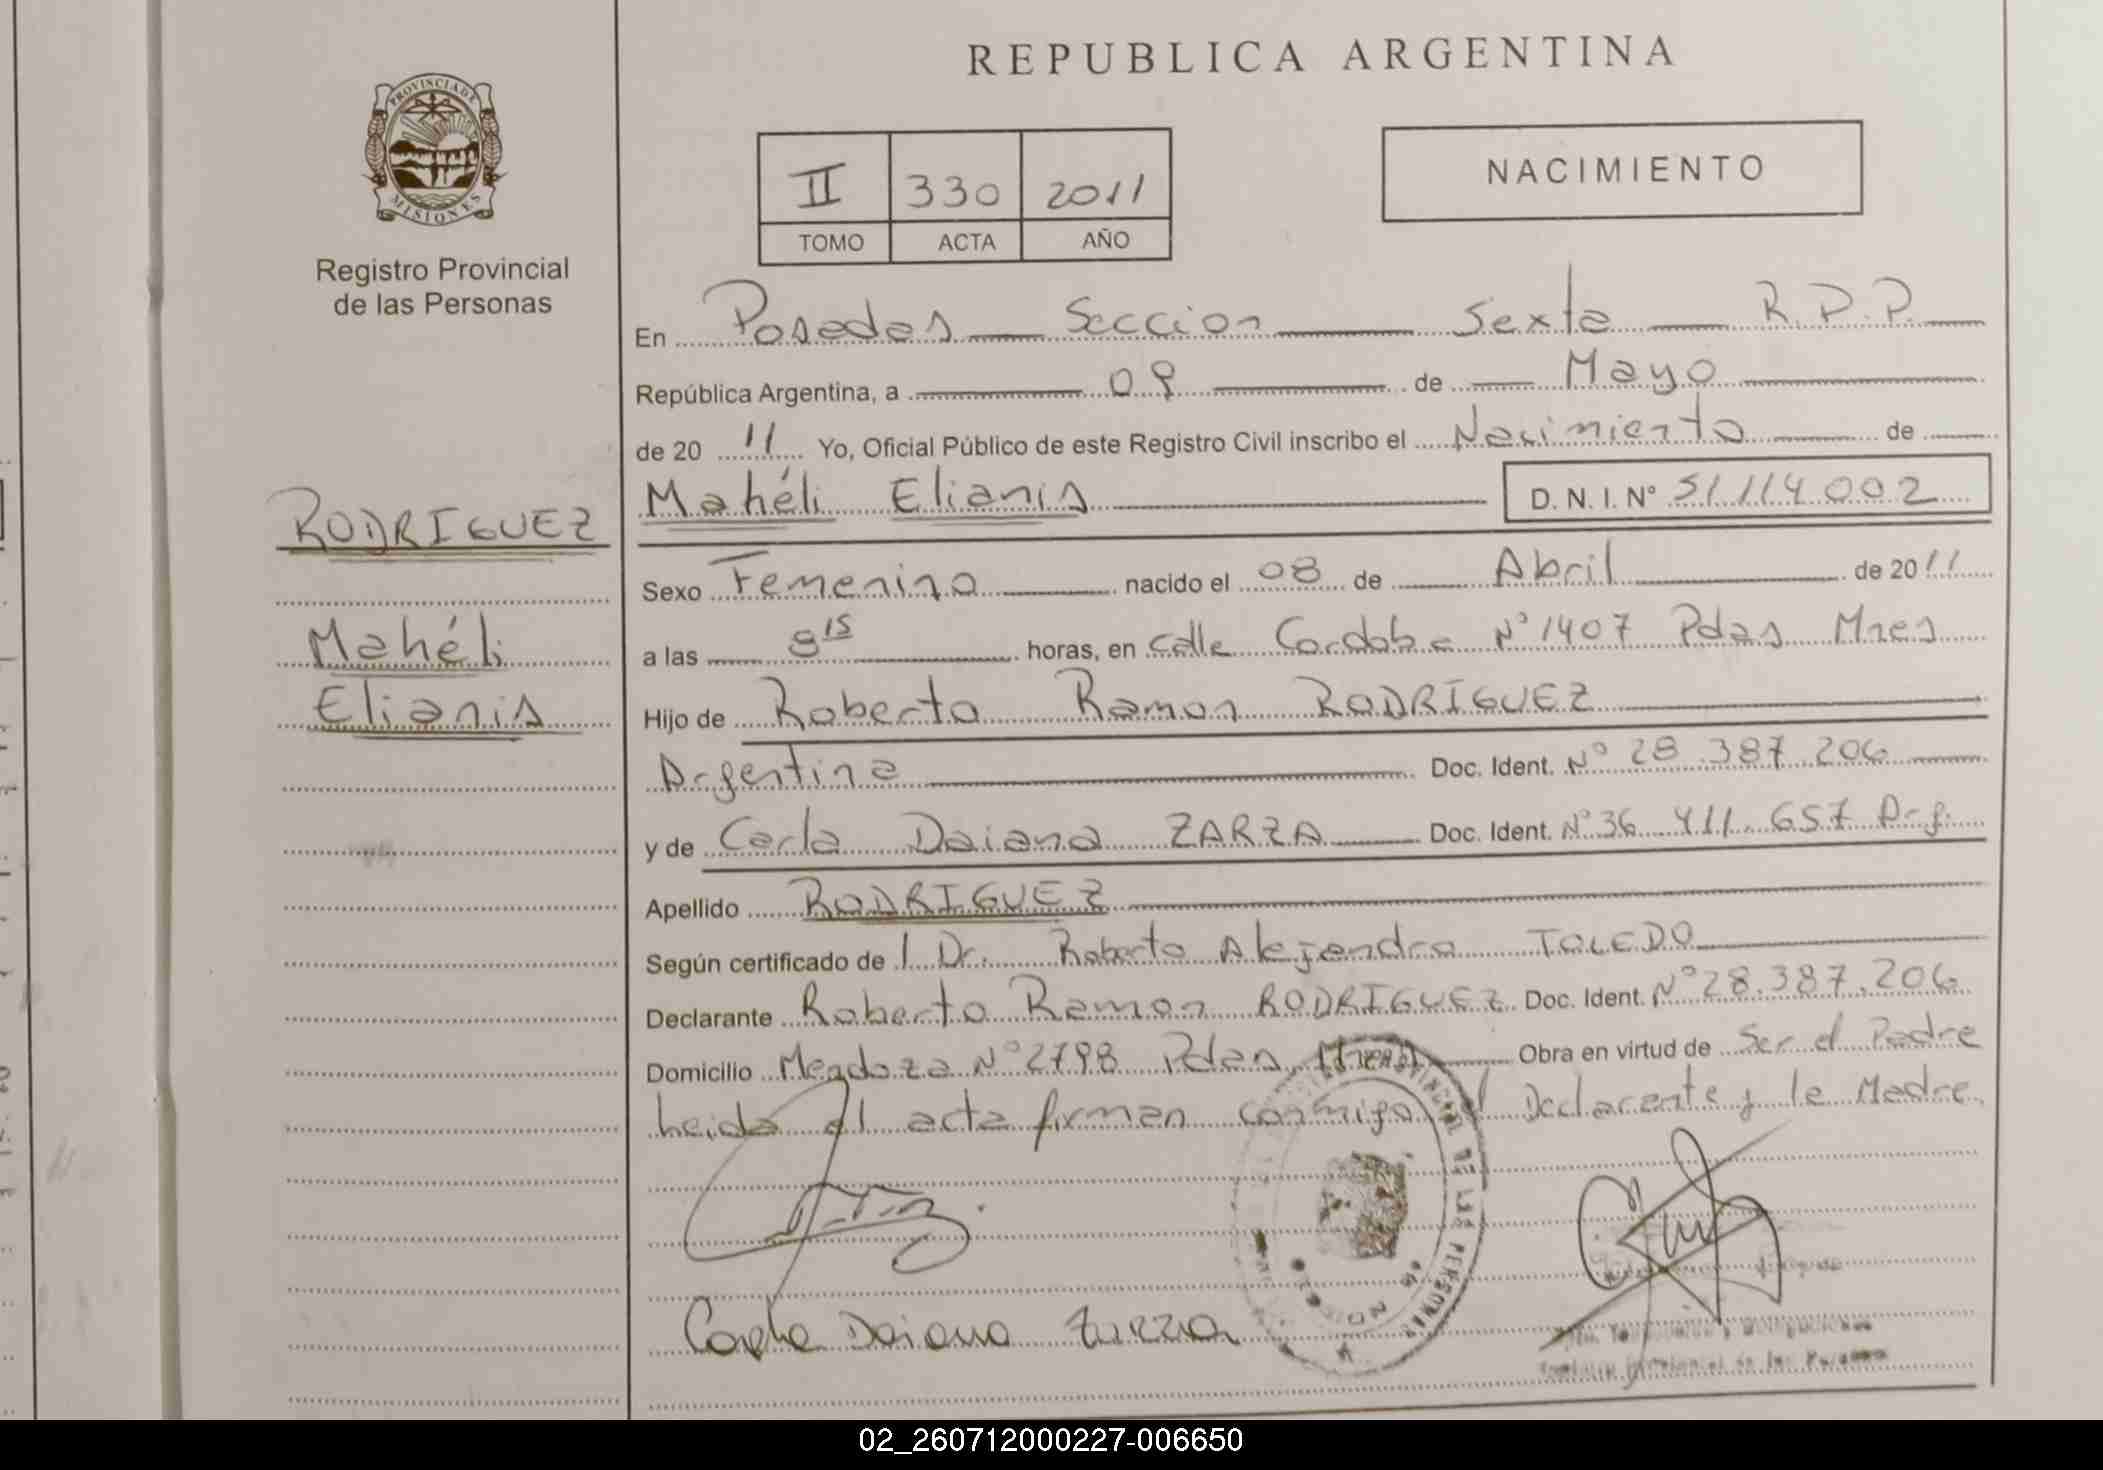 REPUBLICA ARGENTINA
PROVINCIA DE
MISIONES
Registro Provincial
de las Personas
II 330 2011
TOMO ACTA AÑO
NACIMIENTO
En Posadas Seccion Sexta R.P.P.
República Argentina, a 09 de Mayo
de 20 11 Yo, Oficial Público de este Registro Civil inscribo el Nacimiento de
Mahéli Elianis D. N. I. Nº 51.114.002
RODRIGUEZ
Mahéli
Elianis
Sexo Femenino nacido el 08 de Abril de 2011
a las 8 15 horas, en calle Cordoba Nº 1407 Pdas Mnes
Hijo de Roberto Ramon RODRIGUEZ
Argentina Doc. Ident. Nº 28.387.206
y de Carla Daiana ZARZA Doc. Ident. Nº 36.411.657 Arg.
Apellido RODRIGUEZ
Según certificado de l Dr. Roberto Alejandro TOLEDO
Declarante Roberto Ramon RODRIGUEZ Doc. Ident. Nº 28.387.206
Domicilio Mendoza Nº 2798 Pdas, Mnes Obra en virtud de Ser el Padre
Leida el acta firman conmigo el Declarante y la Madre.
Carla Daiana Zarza
02_260712000227-006650